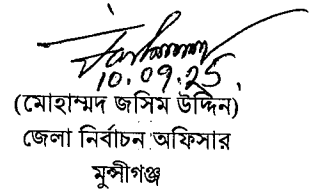 10.09.25
(মোহাম্মদ জসিম উদ্দিন)
জেলা নির্বাচন অফিসার
মুন্সীগঞ্জ